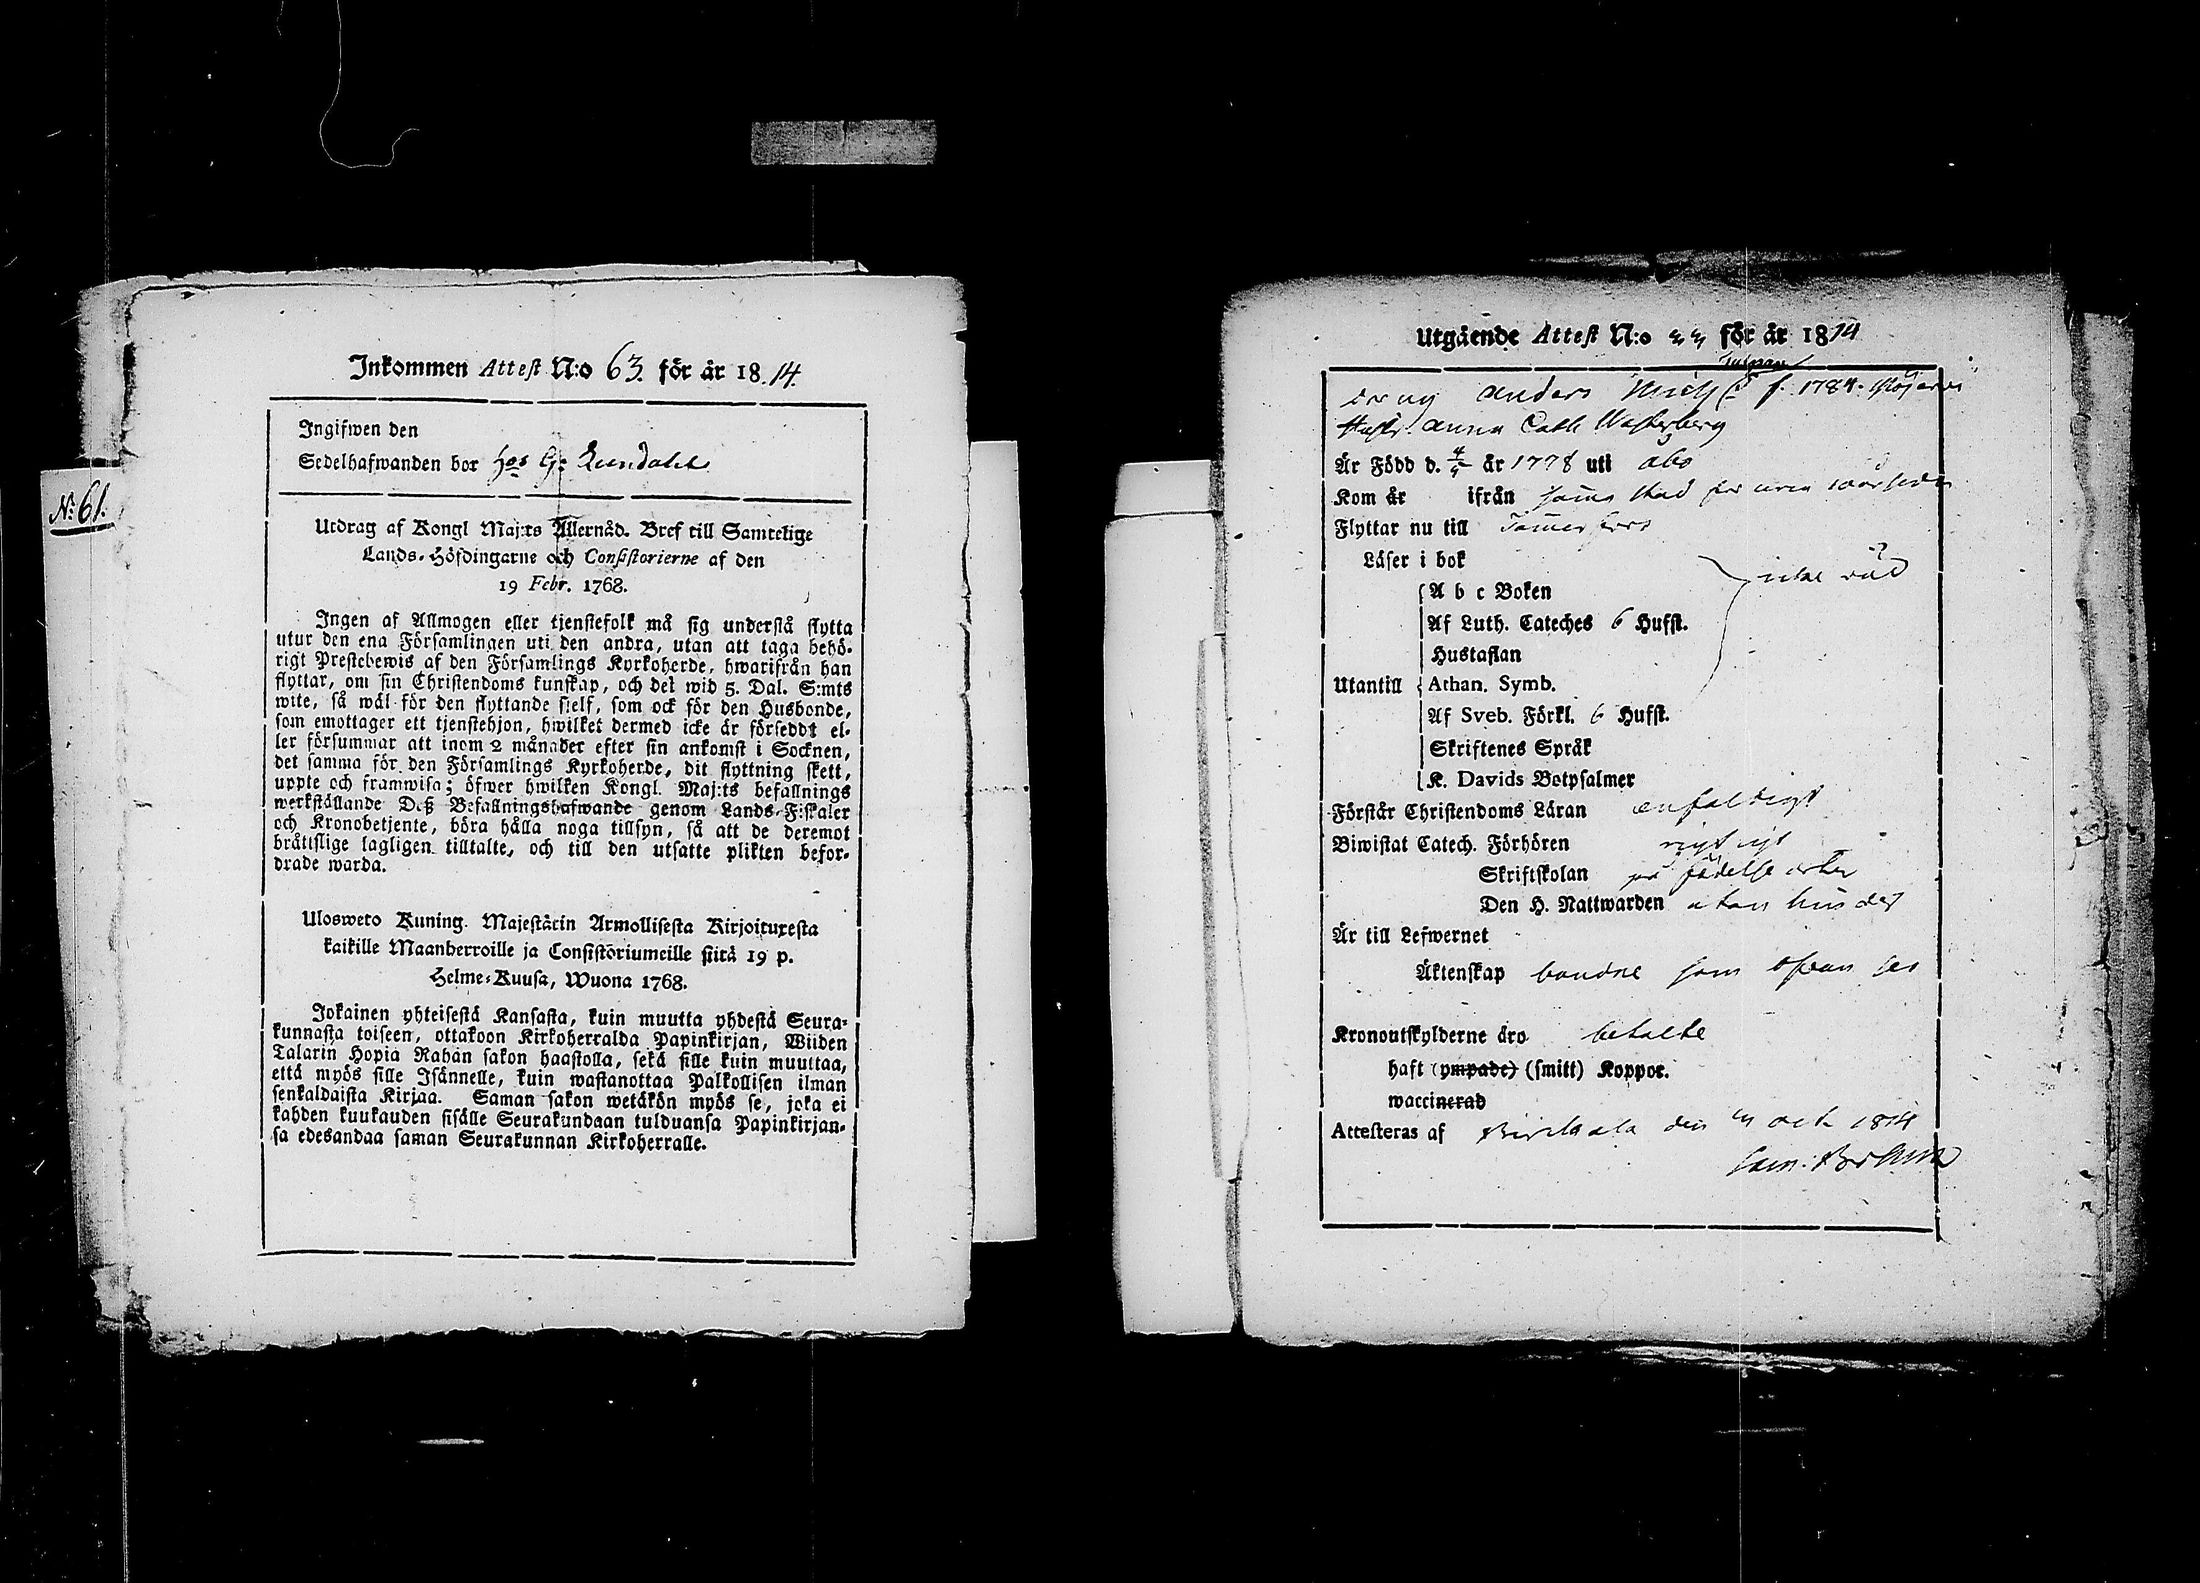 N: 61.
Inkommen Attest N:o 63. för år 18.14.
Ingifwen den
Sedelhafwanden bor hos G: Lundahl
Utdrag af Kongl Maj:ts Allernåd. Bref till Samtelige
Lands-Höfdingarne och Consistorierne af den
19 Febr. 1768.
Ingen af Allmogen eller tjenstefolk må sig understå flytta
utur den ena Församlingen uti den andra, utan att taga behö-
rigt Prestebewis af den Församlings Kyrkoherde, hwarifrån han
flyttar, om sin Christendoms kunskap, och det wid 5. Dal. S:mts
wite, så wäl för den flyttande sjelf, som ock för den Husbonde,
som emottager ett tjenstehjon, hwilket dermed icke är försedt el-
ler försummar att inom 2 månader efter sin ankomst i Socknen,
det samma för den Församlings Kyrkoherde, dit flyttning skett,
uppte och framwisa; öfwer hwilken Kongl. Maj:ts befallnings
werkställande Deß Befallningshafwande genom Lands-Fiskaler
och Kronobetjente, böra hålla noga tillsyn, så att de deremot
bråttslige lagligen tilltalte, och till den utsatte plikten befor-
drade warda.
Ulosweto Kuning. Majestätin Armollisesta Kirjoituxesta
kaikille Maanherroille ja Consistoriumeille siitä 19 p.
Helme-Kuusa, Wuona 1768.
Jokainen yhteisestä Kansasta, kuin muutta yhdestä Seura-
kunnasta toiseen, ottakoon Kirkoherralda Papinkirjan, Wiiden
Talarin Hopia Rahan sakon haastolla, sekä sille kuin muuttaa,
että myös sille Isännelle, kuin wastanottaa Palkollisen ilman
senkaldaista Kirjaa. Saman sakon wetäkön myös se, joka ei
kahden kuukauden sisälle Seurakundaan tulduansa Papinkirjan-
sa edesandaa saman Seurakunnan Kirkoherralle.
Utgående Attest N:o för år 1814
anders Mich f. 1784.
Hustr. anna Cath Westerberg
Är Född d. 4/5 år 1778 uti abo
Kom år ifrån sama stad för
Flyttar nu till Tamerfors
Läser i bok
icke
A b c Boken
Af Luth. Cateches 6 Hufst.
Hustaflan
Utantill Athan. Symb.
Af Sveb. Förkl. 6 Hufst.
Skriftenes Språk
K. Davids Botpsalmer
Förstår Christendoms Läran enfaldigt
Biwistat Catech. Förhören
Skriftskolan på födelse orten
Den H. Nattwarden utan hinder
Är till Lefwernet
Äktenskap bundne som ofvan ses
Kronoutskylderne äro betalte
haft (ympade) (smitt) Koppor.
waccinerad
Attesteras af Birkala den oct 1814
Sam: